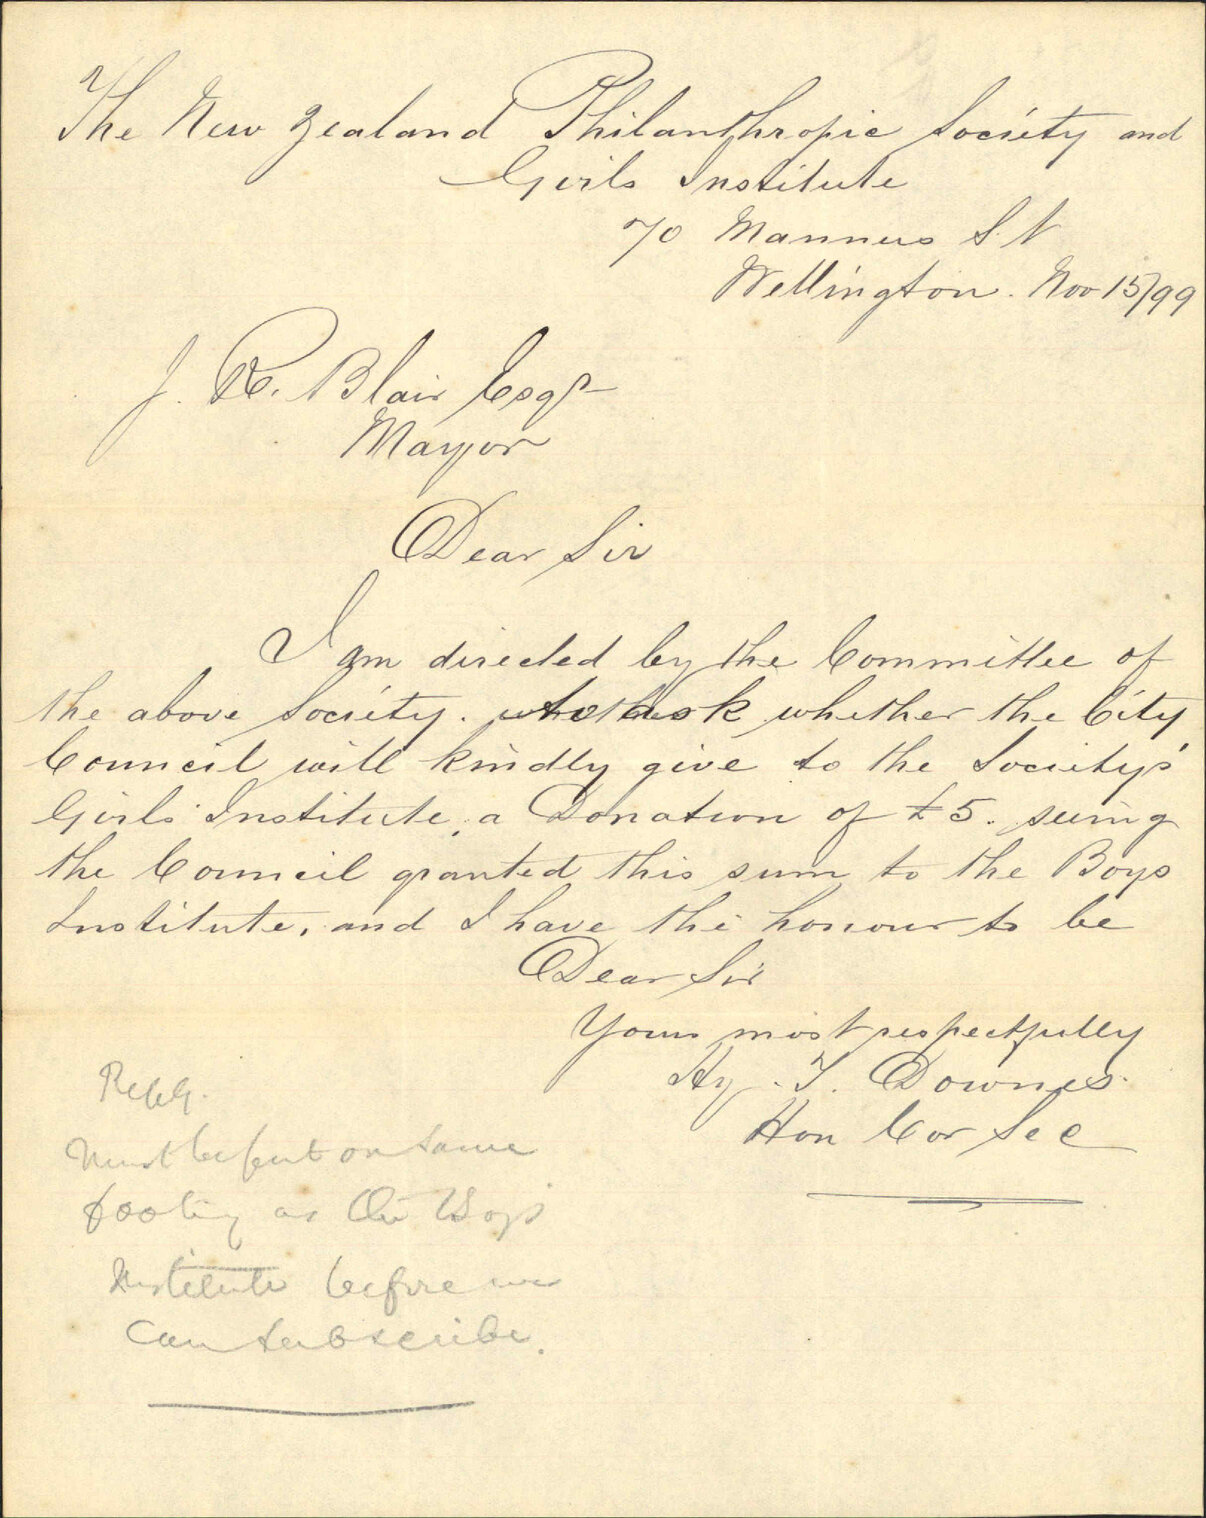 The New Zealand Philanthropic Society and
Girls Institute
70 Manners St
Wellington. Nov 15/99
J. R. Blair Esqr
Mayor
Dear Sir
I am directed by the Committee of
the above Society. to ask whether the City
Council will kindly give to the Society's
Girls Institute, a Donation of £5. seeing
the Council granted this sum to the Boys
Institute, and I have the honour to be
Dear Sir
Yours most respectfully
Hy. T. Downes.
Hon Cor Sec
Reply.
Must be put on same
footing as the Boys
Institute before we
can subscribe.